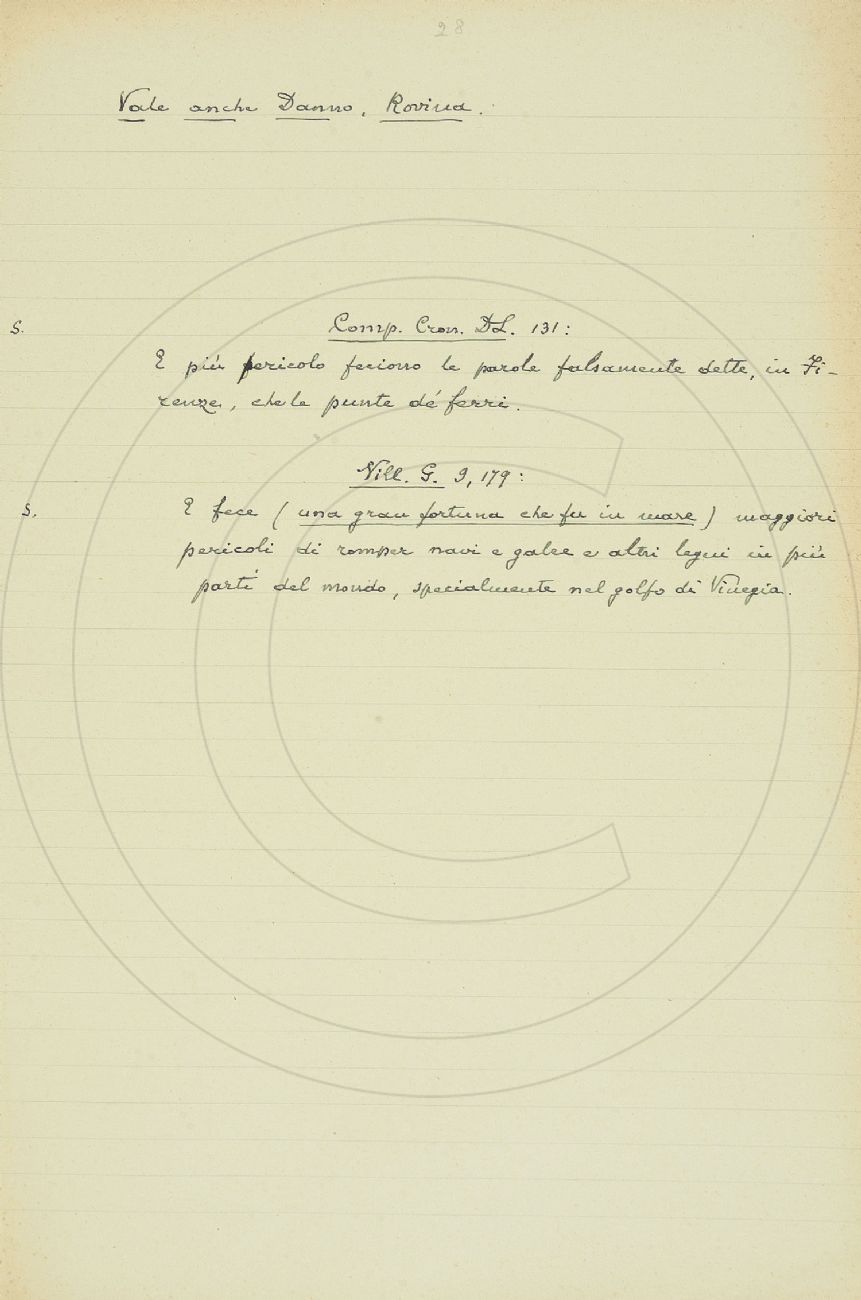 28
Vale anche Danno, Rovina.
S. Comp. Cron. DL. 131:
E più pericolo feciono le parole falsamente dette, in Fi-
renze, che le punte dé ferri.
Vill. G. 9, 179:
S. E fece (una gran fortuna che fu in mare) maggiori
pericoli di romper navi e galee e altri legni in più
parti del mondo, specialmente nel golfo di Vinegia.